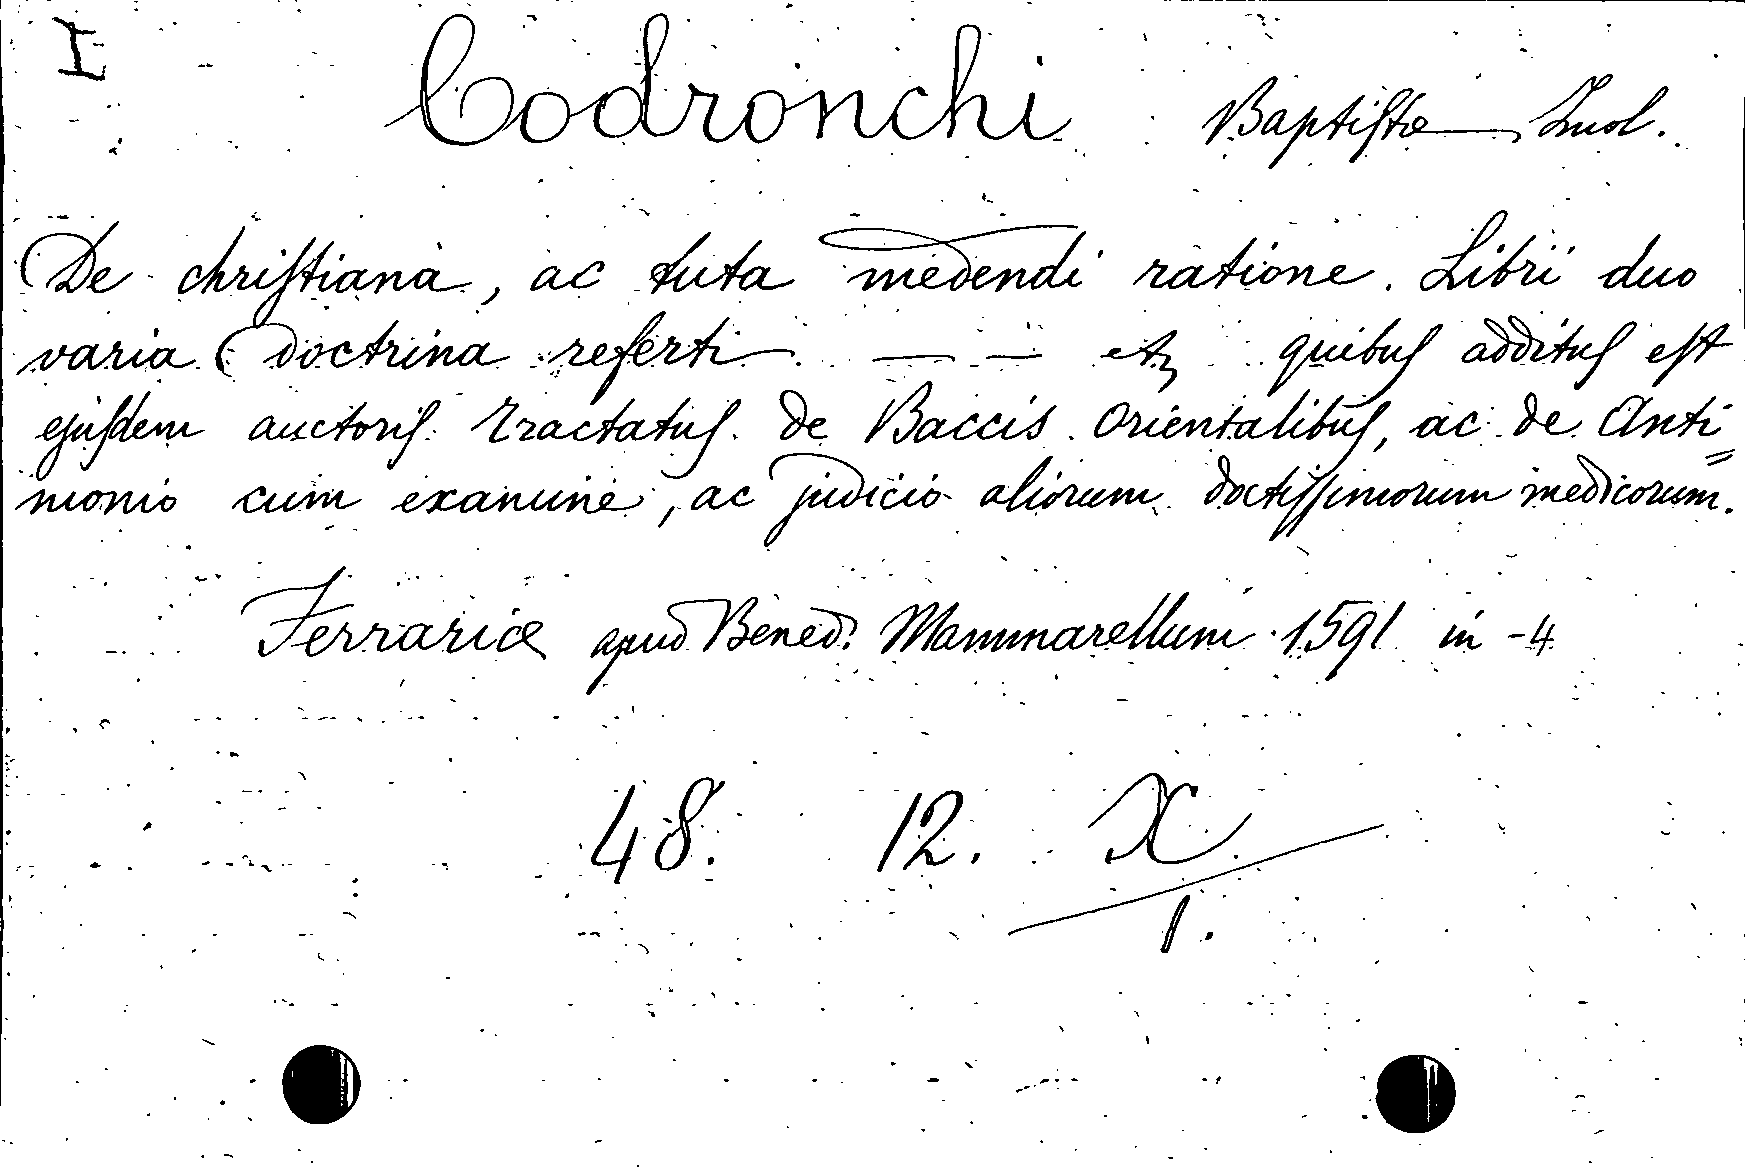 I
Codronchi Baptista Imol.
De christiana, ac tuta medendi ratione. Libri duo
varia doctrina referti — — etz quibus additus est
ejusdem auctoris tractatus de Baccis Orientalibus, ac de Anti=
monio cum examine, ac judicio aliorum doctissimorum medicorum.
Ferrariæ apud Bened: Mammarellum 1591 in -4
48. 12. X.
1.